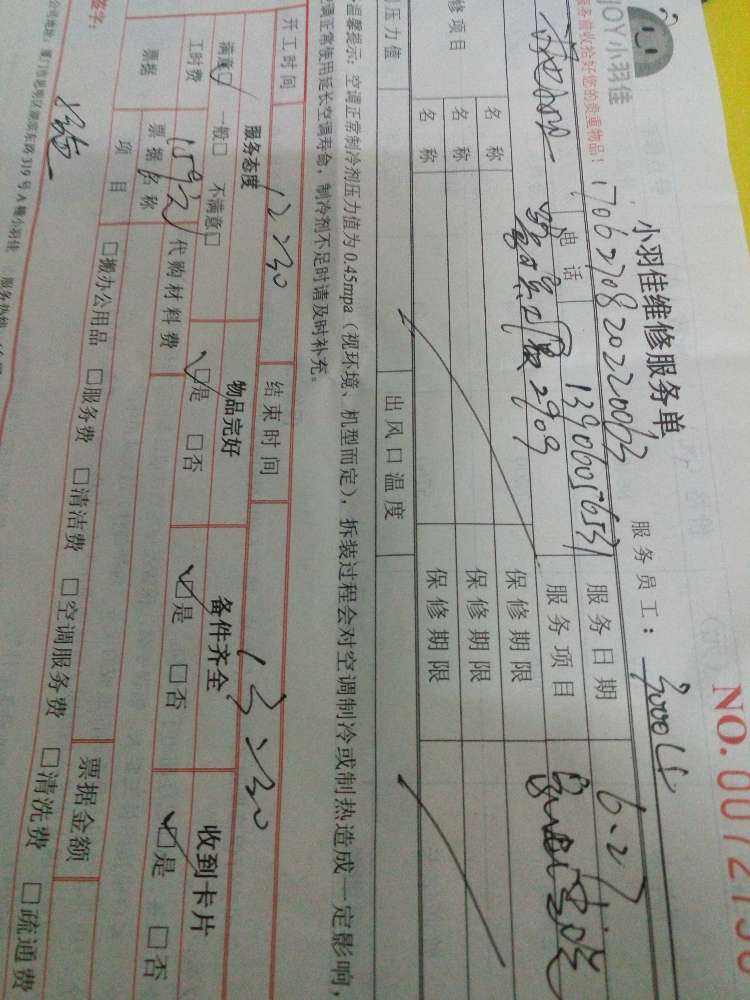 JOY小羽佳
服务前收拾好您的贵重物品！
小羽佳维修服务单
NO.
170627082022006
服务员工：
电话
服务日期 6.27
服务项目
修项目
名称
保修期限
名称
保修期限
名称
保修期限
压力值
出风口温度
温馨提示：空调正常制冷剂压力值为0.45mpa（视环境、机型而定），拆装过程会对空调制冷或制热造成一定影响，
正常使用延长空调寿命，制冷剂不足时请及时补充。
开工时间 12:30
结束时间 13:30
服务态度
物品完好
备件齐全
收到卡片
满意□ 一般□ 不满意□
□是 □否
□是 □否
□是 □否
工时费 159元
代购材料费
票据
票据名称
票据金额
项目
□搬办公用品 □服务费 □清洁费 □空调服务费 □清洗费 □疏通费
签字：
公司地址：厦门市思明区湖滨东路319号A幢小羽佳